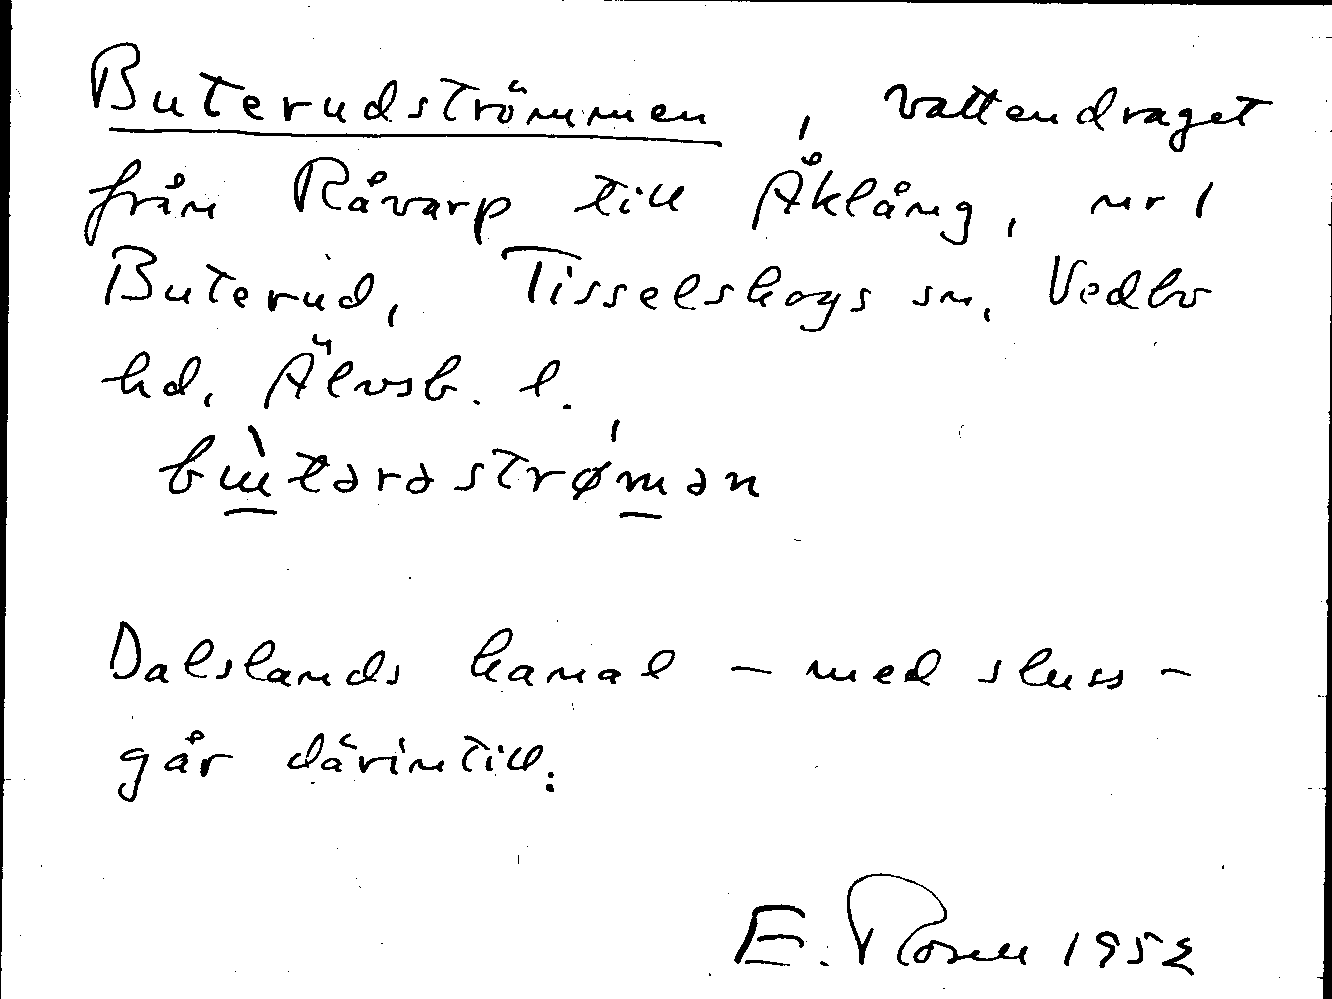 Buterudströmmen, vattendraget
från Råvarp till Åklång, nr 1
Buterud, Tisselskogs sn, Vedbo
hd, Älvsb. l.
bɯ̀tərəstrø̍mən
Dalslands kanal – med sluss –
går därintill.
E. Rosell 1952